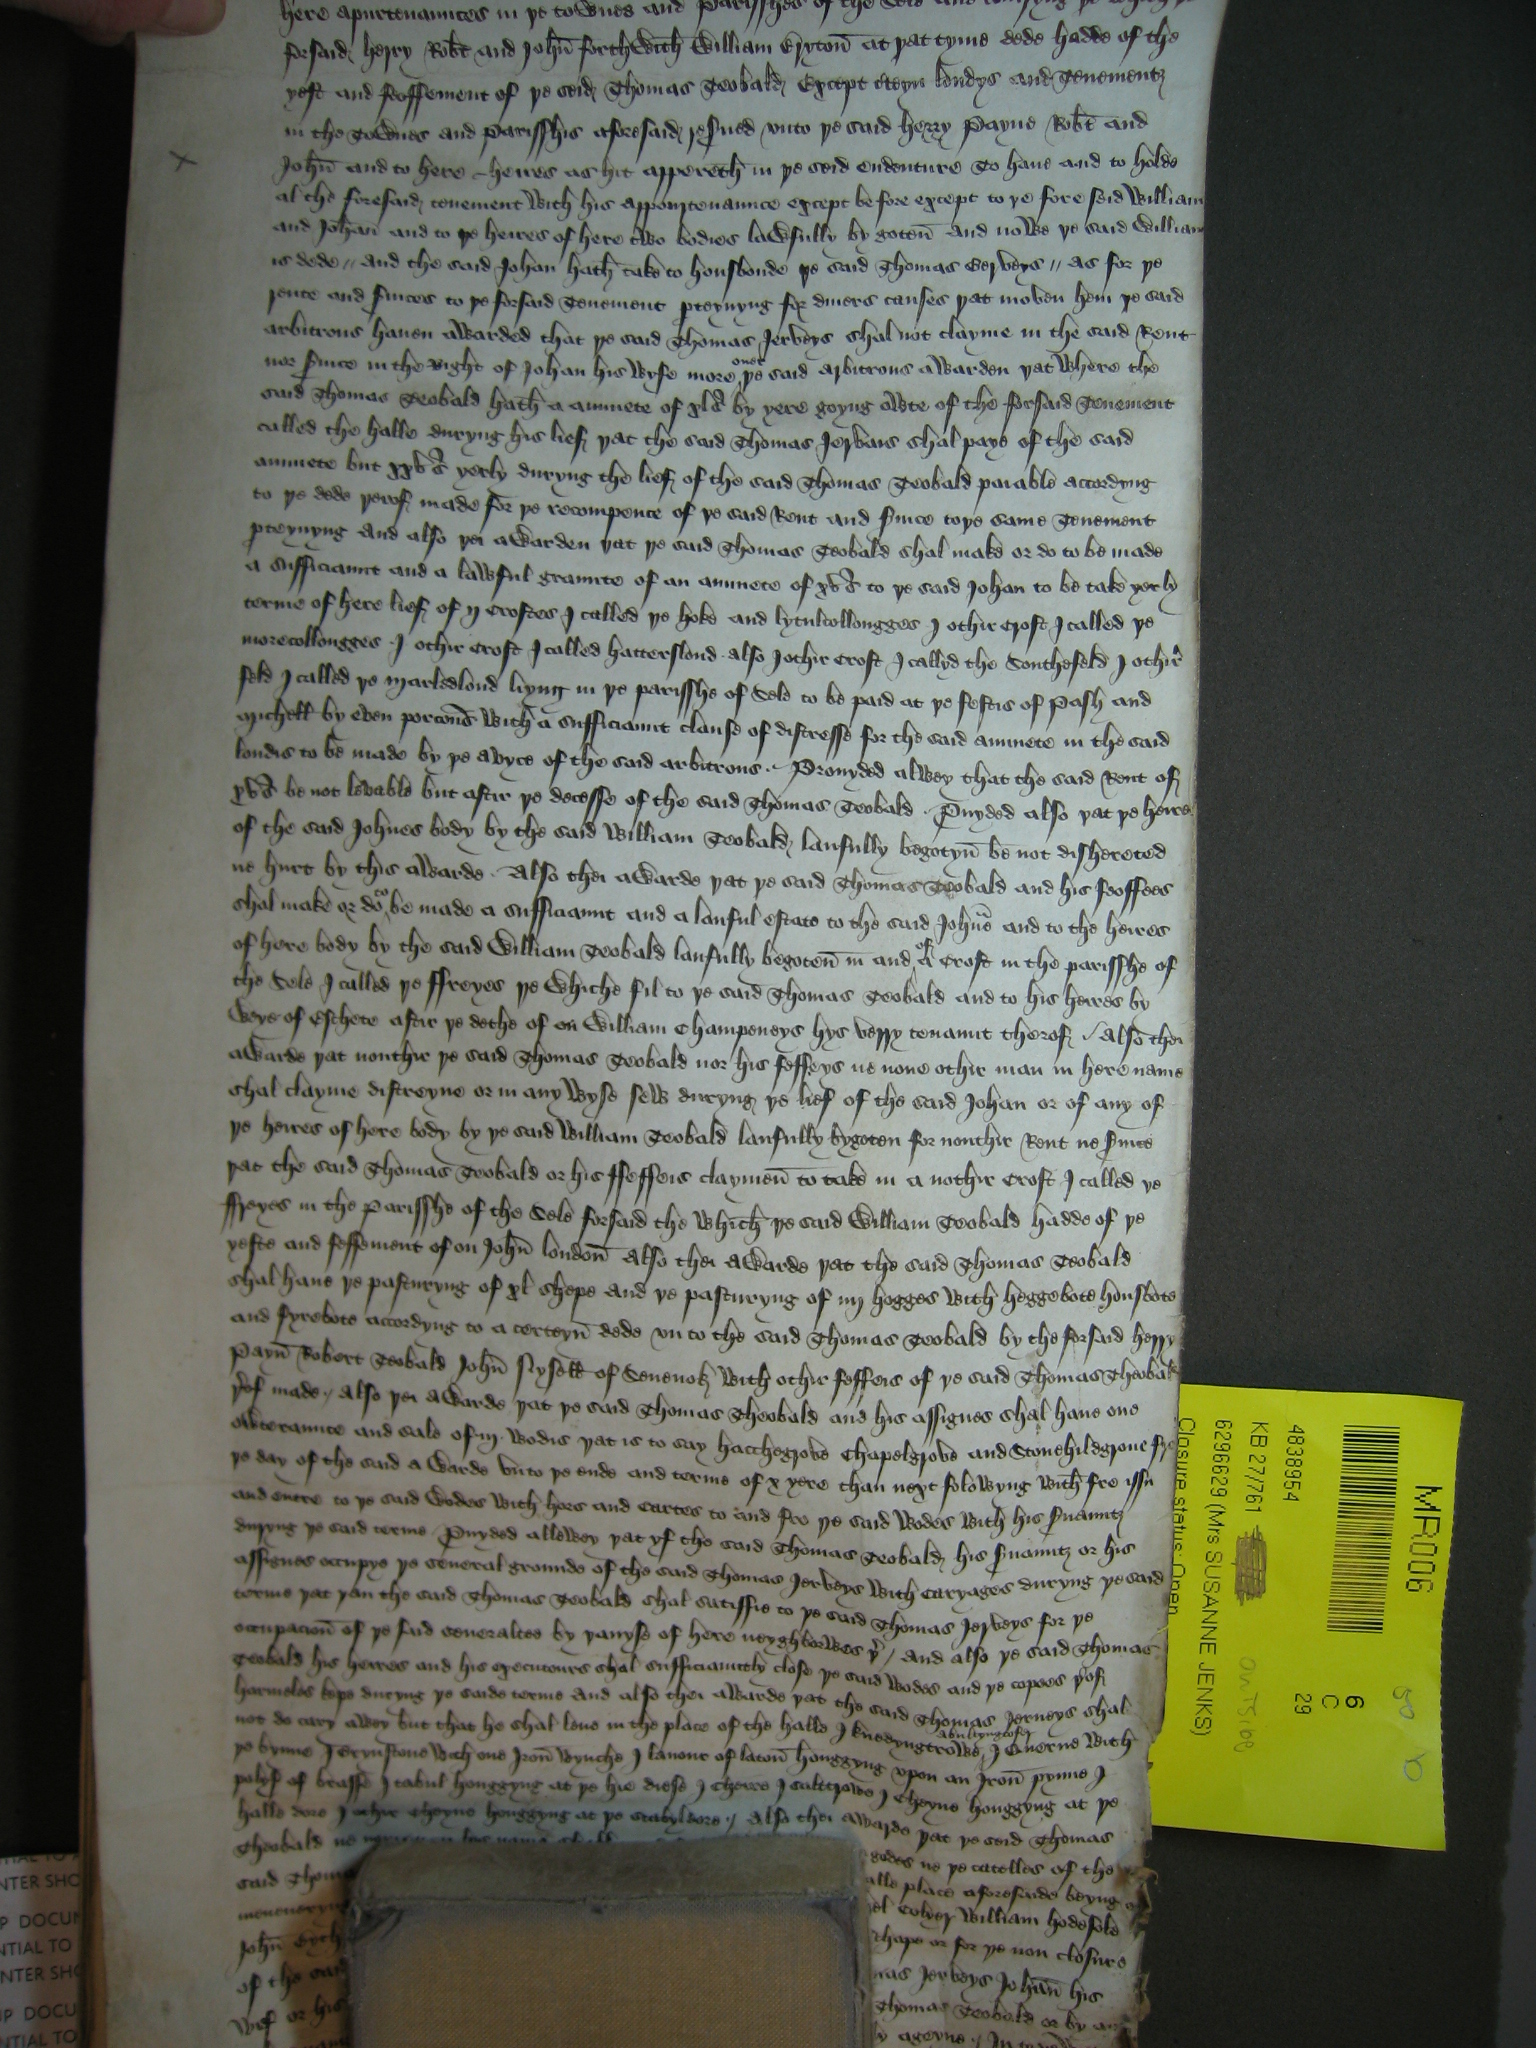 here apurtenaunces in þe townes and Parisshes of the Sele and
forsaid herry Robt and John forthwith William Eyton at þat tyme dede hadde of the
yeft and feoffement of þe seid Thomas Teobald Except cteyn londys and Tenementz
in the Townes and Parisshis aforesaid resued vnto þe said herry Payne Robt and
John and to here heires as hit appereth in þe seid endenture To haue and to holde
al the foresaid tenement with his appourtenaunce except before except to þe fore seid William
and Johan and to þe heires of here two bodies lawfully by goten And nowe þe said William
is dede // and the said Johan hath take to housbonde þe said Thomas Gerveys // as for þe
rente and suices to þe forsaid Tenement pteynyng for diuers causes þat moven hem þe said
arbitrous hauen awarded that þe said Thomas Jerveys shal not clayme in the said Rent
nor suice in the right of Johan his wyfe more ouer þe said arbitrous awarden þat where the
said Thomas Teobald hath a annuete of xls by yere goyng owte of the forsaid Tenement
called the halle duryng his lief þat the said Thomas Jervais shal paye of the said
annuete but xxvs yerly duryng the lief of the said Thomas Teobald paiable accordyng
to þe dede þerof made for þe recompence of þe said Rent and suice to þe same Tenement
pteynyng And also þei awarden þat þe said Thomas Teobald shal make or do to be made
a sufficiaunt and a lawful graunte of an annuete of xvs to þe said Johan to be take yerly
terme of here lief of ij Croftes J called þe hoke and lytulcollongges J othir Croft J called þe
morecollongges J othir Croft J called hatterslond also J othir Croft J callyd the Southefeld J othir
feld J called þe Marledlond liyng in þe parisshe of Sele to be paid at þe festis of Pash and
Michell by even porcons with a sufficiaunt clause of distresse for the said annuete in the said
londis to be made by þe avyce of the said arbitrous Prouyded alwey that the said Rent of
xvs be not levable but aftir þe decesse of the said Thomas Teobald Puyded also þat þe heires
of the said Johnes body by the said William Teobald laufully begotyn be not dishereted
ne hurt by this awarde Also thei awarde þat þe said Thomas Teobald and his feoffees
shal make or do to be made a sufficiaunt and a lauful estate to the said Johne and to the heires
of here body by the said William Teobald laufully begoten in and of a Croft in the parisshe of
the Sele J called þe ffreyes þe whiche fil to þe said Thomas Teobald and to his heires by
weye of Eschete aftir þe dethe of on William Champeneys hys verry tenaunt therof / Also thei
awarde þat nouthir þe said Thomas Teobald nor his feffeys ne none othir man in here name
shal clayme distreyne or in any wyse sew duryng þe lief of the said Johan or of any of
þe heires of here body by þe said William Teobald laufully bygoten for nouthir Rent ne suice
þat the said Thomas Teobald or his ffeffeis claymen to take in a nothir Croft J called þe
ffreyes in the Parisshe of the Sele forsaid the which þe said William Teobald hadde of þe
yefte and feffement of on John london Also thei awarde þat the said Thomas Teobald
shal haue þe pasturyng of xl shepe and þe pasturyng of iiij hogges with heggebote housbote
and fyrebote accordyng to a certeyn dede vn to the said Thomas Teobald by the forsaid herry
Payn Robert Teobald John Nysell of Seuenok with othir feffeis of þe said Thomas Theobald
þof made / also þei awarde þat þe said Thomas Theobald and his assignes shal haue one
owteraunce and sale of iij wodis þat is to say hatchegrove Chapelgrove and Stonehildgroue
þe day of the said awarde vnto þe ende and terme of x yere than next folowyng with fre issu
and entre to þe said wodes with hors and Cartes to and fro þe said wodes with his suauntz
duryng þe said terme Puyded allewey þat yf the said Thomas Teobald his suauntz or his
assignes occupye þe seueral grounde of the said Thomas Jerveys with Caryages duryng þe said
terme þat þan the said Thomas Teobald shal satisfie to þe said Thomas Jerveys for þe
occupacion of þe said seueraltee by þanyse of here neyghborwes þ / And also þe said Thomas
Teobald his heires and his executours shal sufficiauntly close þe said wodes and þe copees þof
harmeles kepe duryng þe saide terme And also thei awarde þat the said Thomas Jerueys shal
not do cary awey but that he shal leue in the place of the halle J knedyngtrowe J Querne with
þe bynne J Grynstone with one Jron wynche J lauour of laton honggyng vpon an Jron pynne J
polys of brasse J tabul honggyng at þe hie diese J cheire J J Cheyne honggyng at þe
halle dore J othir Cheyne honggyng at þe stabyldore // Also thei awarde þat þe seid Thomas
Theobald ne godes ne þe catelles of the
said Thom alle place aforesaide beyng
Colver William hodesole
John shape or for þe non closure
of the said Jerveys Johan his
wyf or his Thomas Teobald or by
ageyne
MR006
4838954
KB 27/761
6296629 (Mrs SUSANNE JENKS)
Closure status: Open
6
C
29
50
NTER SHO
P DOCUM
NTIAL TO
NTER SHO
IP DOCU
NTIAL TO